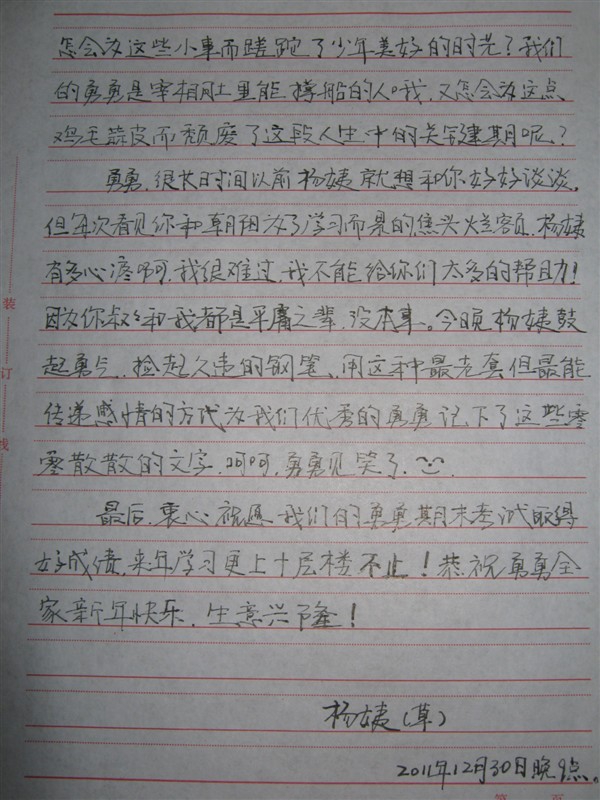 怎会为这些小事而蹉跎了少年美好的时光？我们
的勇勇是宰相肚里能撑船的人哦，又怎会为这点
鸡毛蒜皮而颓废了这段人生中的关键期呢？
勇勇，很长时间以前杨姨就想和你好好谈谈，
但每次看见你和朝阳为了学习而累的焦头烂额，杨姨
有多心疼啊，我很难过，我不能给你们太多的帮助！
因为你叔叔和我都是平庸之辈，没本事。今晚杨姨鼓
起勇气，捡起久违的钢笔、用这种最老套但最能
传递感情的方式为我们优秀的勇勇记下了这些零
零散散的文字，呵呵，勇勇见笑了，
最后，衷心祝愿我们的勇勇期末考试取得
好成绩，来年学习更上十层楼不止！恭祝勇勇全
家新年快乐，生意兴隆！
杨姨（草）
2011年12月30日晚9点。
装
订
线
第 页